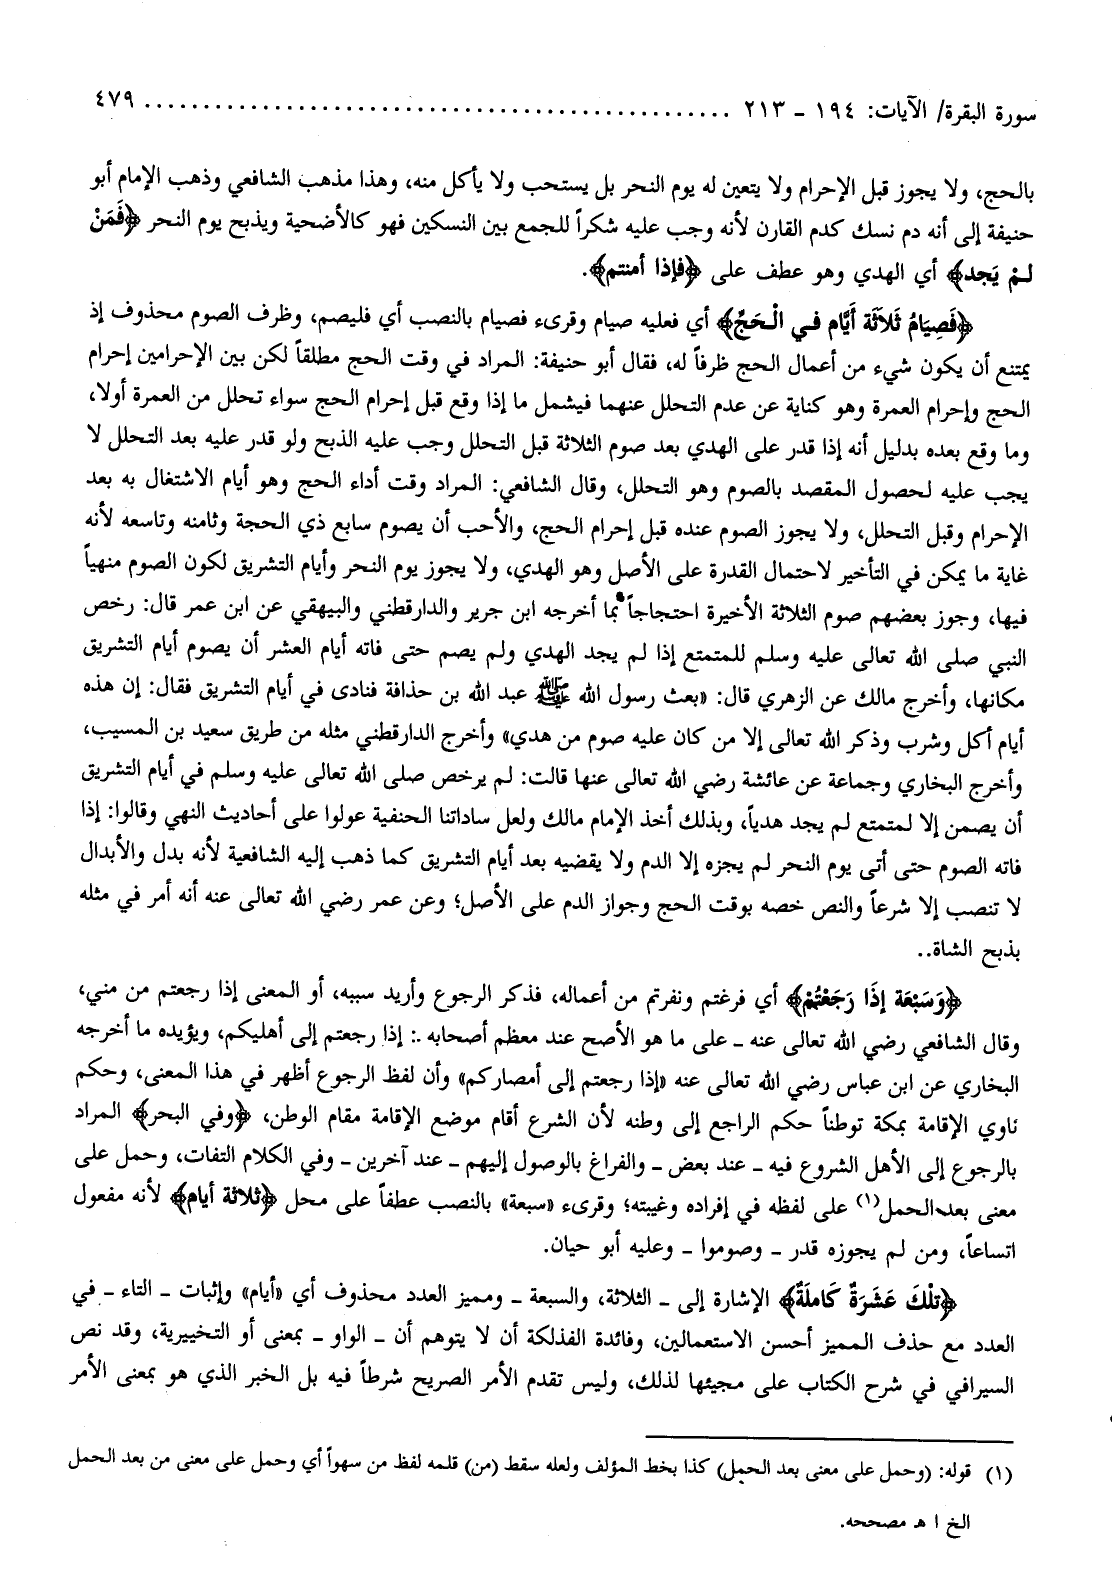 سورة البقرة/ الآيات: ١٩٤ ـ ٢١٣ .................................................. ٤٧٩
بالحج، ولا يجوز قبل الإحرام ولا يتعين له يوم النحر بل يستحب ولا يأكل منه، وهذا مذهب الشافعي وذهب الإمام أبو
حنيفة إلى أنه دم نسك كدم القارن لأنه وجب عليه شكراً للجمع بين النسكين فهو كالأضحية ويذبح يوم النحر ﴿فَمَنْ
لمْ يَجد﴾ أي الهدي وهو عطف على ﴿فإذا أمنتم﴾.
﴿فَصِيَامُ ثَلاَثَة أَيَّام في الْحَجِّ﴾ أي فعليه صيام وقرىء فصيام بالنصب أي فليصم، وظرف الصوم محذوف إذ
يمتنع أن يكون شيء من أعمال الحج ظرفاً له، فقال أبو حنيفة: المراد في وقت الحج مطلقاً لكن بين الإحرامين إحرام
الحج وإحرام العمرة وهو كناية عن عدم التحلل عنهما فيشمل ما إذا وقع قبل إحرام الحج سواء تحلل من العمرة أولا،
وما وقع بعده بدليل أنه إذا قدر على الهدي بعد صوم الثلاثة قبل التحلل وجب عليه الذبح ولو قدر عليه بعد التحلل لا
يجب عليه لحصول المقصد بالصوم وهو التحلل، وقال الشافعي: المراد وقت أداء الحج وهو أيام الاشتغال به بعد
الإحرام وقبل التحلل، ولا يجوز الصوم عنده قبل إحرام الحج، والأحب أن يصوم سابع ذي الحجة وثامنه وتاسعه لأنه
غاية ما يمكن في التأخير لاحتمال القدرة على الأصل وهو الهدي، ولا يجوز يوم النحر وأيام التشريق لكون الصوم منهياً
فيها، وجوز بعضهم صوم الثلاثة الأخيرة احتجاجاً بما أخرجه ابن جرير والدارقطني والبيهقي عن ابن عمر قال: رخص
النبي صلى الله تعالى عليه وسلم للمتمتع إذا لم يجد الهدي ولم يصم حتى فاته أيام العشر أن يصوم أيام التشريق
مكانها، وأخرج مالك عن الزهري قال: «بعث رسول الله ﷺ عبد الله بن حذافة فنادى في أيام التشريق فقال: إن هذه
أيام أكل وشرب وذكر الله تعالى إلا من كان عليه صوم من هدي» وأخرج الدارقطني مثله من طريق سعيد بن المسيب،
وأخرج البخاري وجماعة عن عائشة رضي الله تعالى عنها قالت: لم يرخص صلى الله تعالى عليه وسلم في أيام التشريق
أن يصمن إلا لمتمتع لم يجد هدياً، وبذلك أخذ الإمام مالك ولعل ساداتنا الحنفية عولوا على أحاديث النهي وقالوا: إذا
فاته الصوم حتى أتى يوم النحر لم يجزه إلا الدم ولا يقضيه بعد أيام التشريق كما ذهب إليه الشافعية لأنه بدل والأبدال
لا تنصب إلا شرعاً والنص خصه بوقت الحج وجواز الدم على الأصل؛ وعن عمر رضي الله تعالى عنه أنه أمر في مثله
بذبح الشاة..
﴿وَسَبْعَة إذَا رَجَعْتُمْ﴾ أي فرغتم ونفرتم من أعماله، فذكر الرجوع وأريد سببه، أو المعنى إذا رجعتم من منى،
وقال الشافعي رضي الله تعالى عنه ـ على ما هو الأصح عند معظم أصحابه ـ: إذا رجعتم إلى أهليكم، ويؤيده ما أخرجه
البخاري عن ابن عباس رضي الله تعالى عنه «إذا رجعتم إلى أمصاركم» وأن لفظ الرجوع أظهر في هذا المعنى، وحكم
ناوي الإقامة بمكة توطناً حكم الراجع إلى وطنه لأن الشرع أقام موضع الإقامة مقام الوطن، ﴿وفي البحر﴾ المراد
بالرجوع إلى الأهل الشروع فيه ـ عند بعض ـ والفراغ بالوصول إليهم ـ عند آخرين ـ وفي الكلام التفات، وحمل على
معنى بعد الحمل(١) على لفظه في إفراده وغيبته؛ وقرىء «سبعة» بالنصب عطفاً على محل ﴿ثلاثة أيام﴾ لأنه مفعول
اتساعاً، ومن لم يجوزه قدر ـ وصوموا ـ وعليه أبو حيان.
﴿تلْكَ عَشَرَةٌ كَاملَةٌ﴾ الإشارة إلى ـ الثلاثة، والسبعة ـ ومميز العدد محذوف أي «أيام» وإثبات ـ التاء ـ في
العدد مع حذف المميز أحسن الاستعمالين، وفائدة الفذلكة أن لا يتوهم أن ـ الواو ـ بمعنى أو التخييرية، وقد نص
السيرافي في شرح الكتاب على مجيئها لذلك، وليس تقدم الأمر الصريح شرطاً فيه بل الخبر الذي هو بمعنى الأمر
(١) قوله: (وحمل على معنى بعد الحمل) كذا بخط المؤلف ولعله سقط (من) قلمه لفظ من سهواً أي وحمل على معنى من بعد الحمل
الخ ا هـ مصححه.